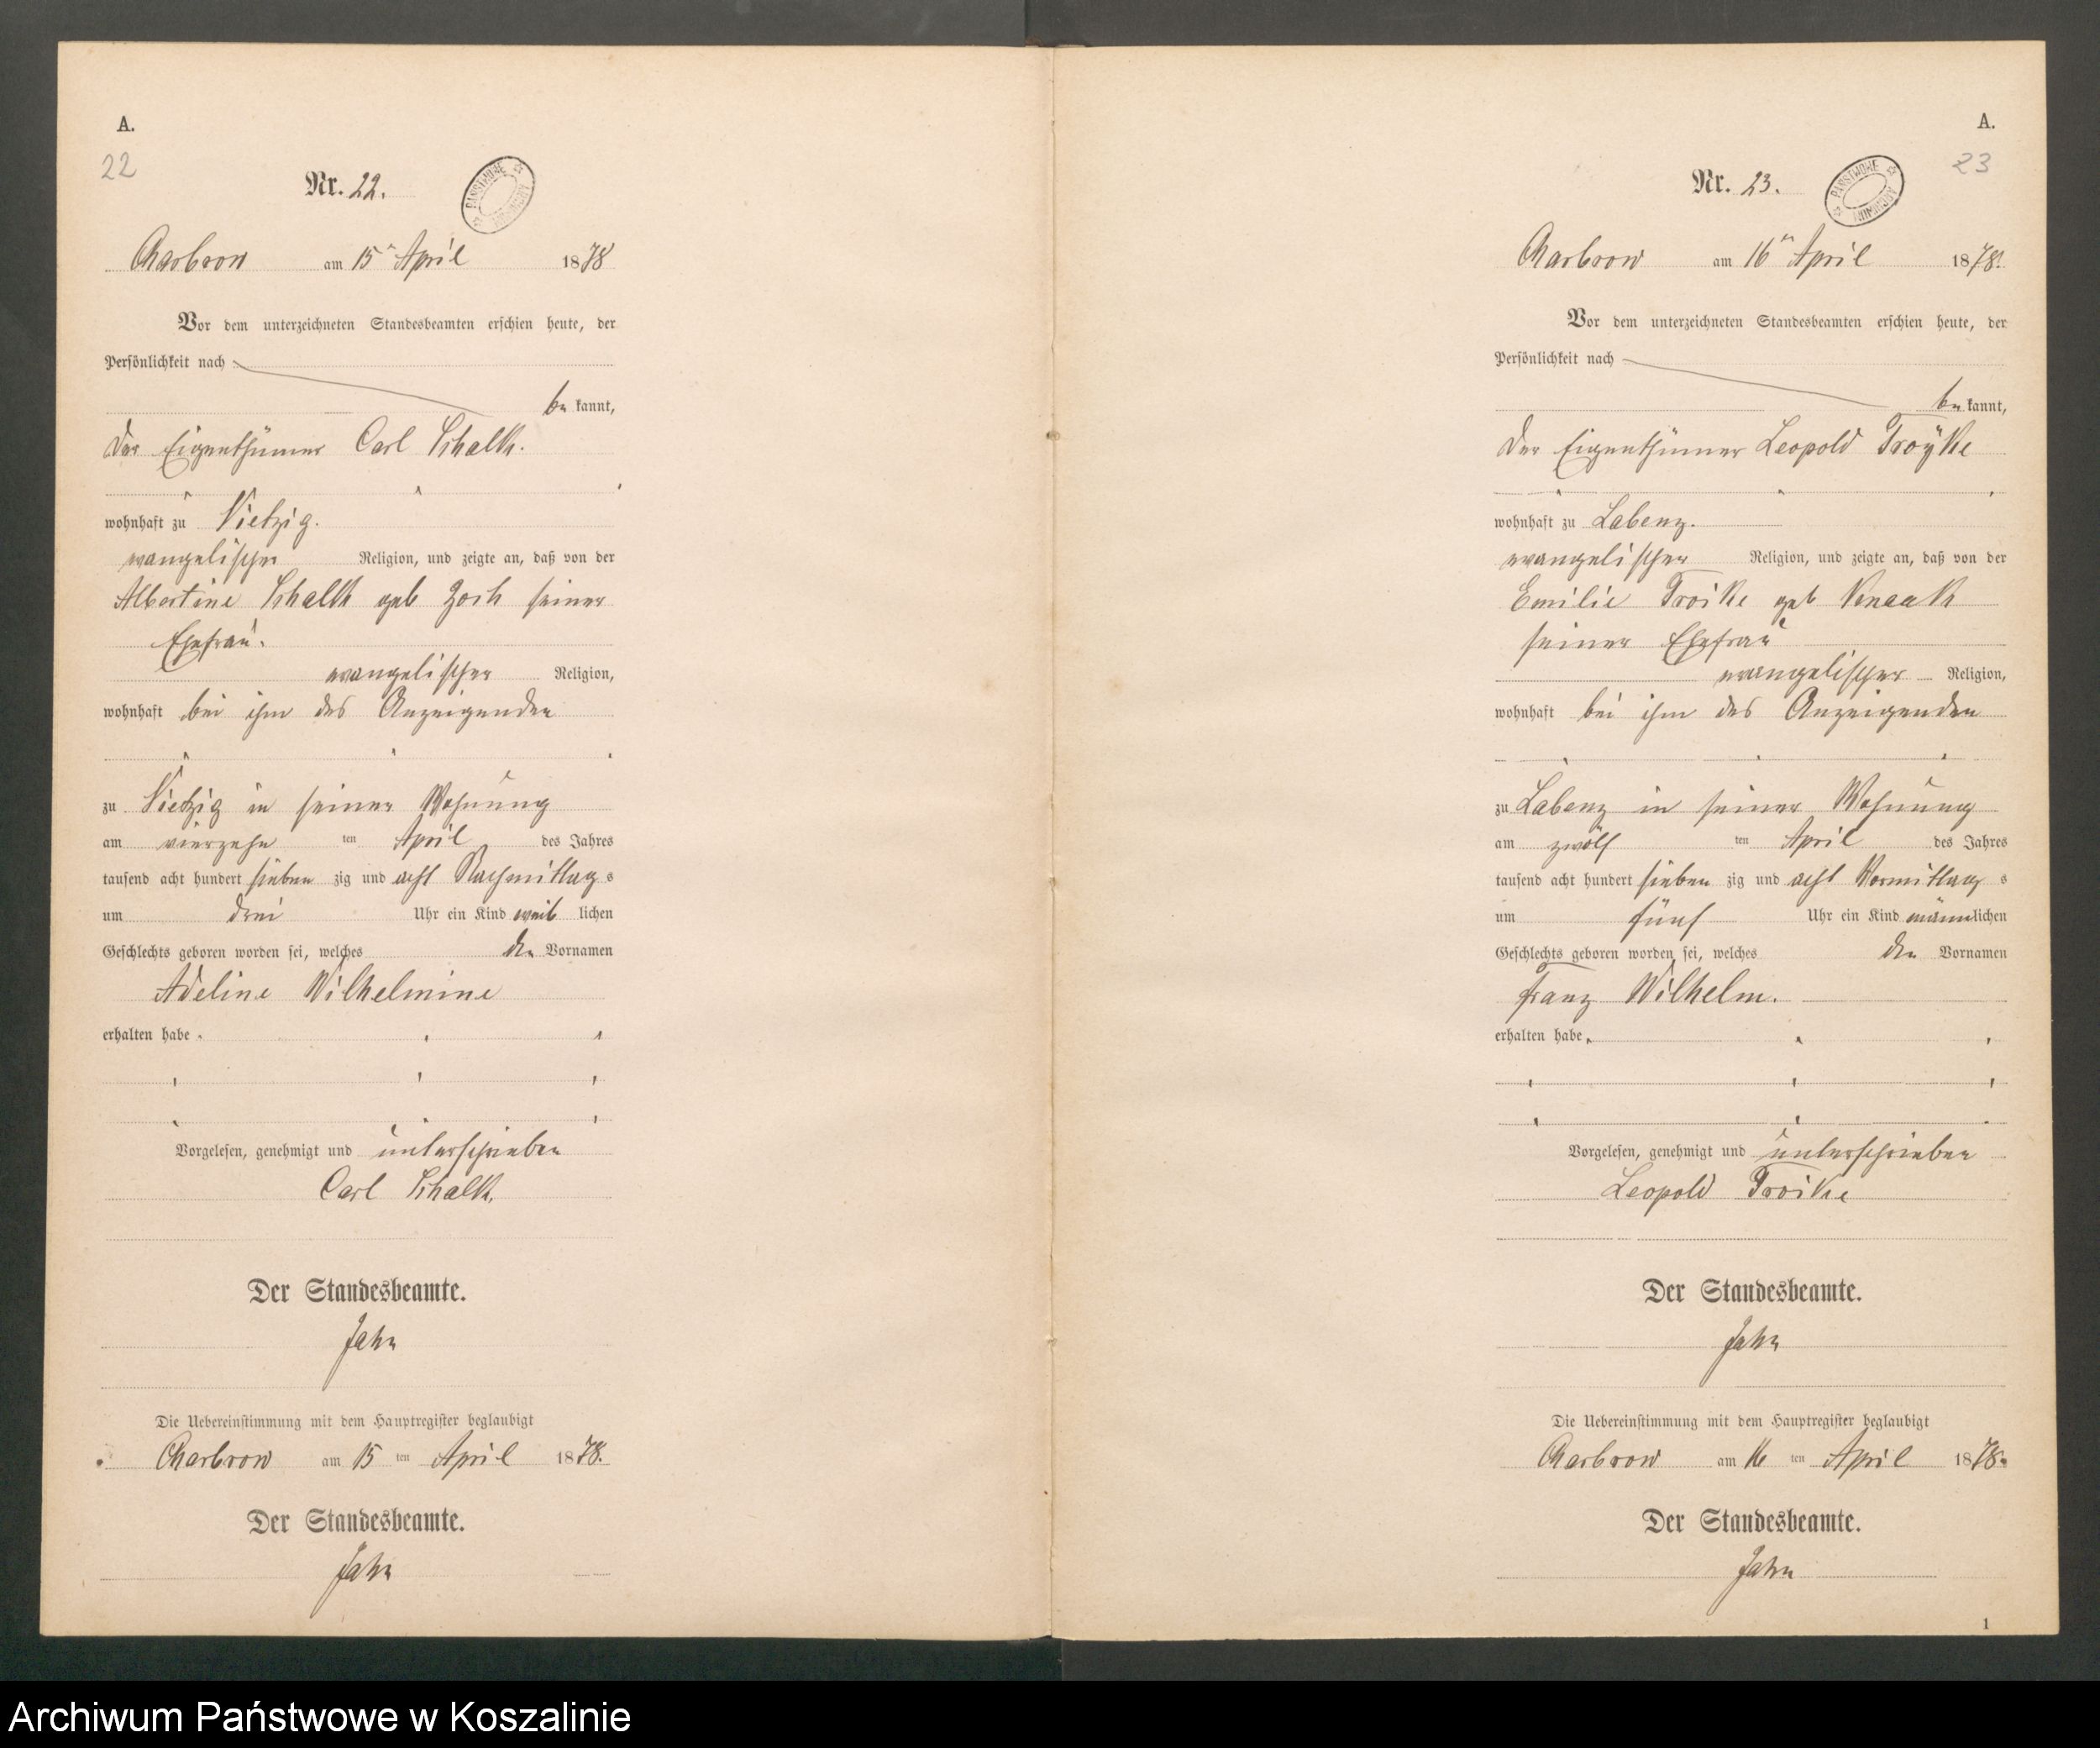 A.
22
Nr. 22.
PAŃSTWOWE ARCHIWUM
Charbrow am 15ⁿ April 1878
Vor dem unterzeichneten Standesbeamten erschien heute, der
Persönlichkeit nach
be kannt,
der Eigenthümer Carl Schalk.
wohnhaft zu Vietzig.
evangelischer Religion, und zeigte an, daß von der
Albertine Schalk geb Zoch seiner
Ehefrau.
evangelischer Religion,
wohnhaft bei ihm des Anzeigenden
zu Vietzig in seiner Wohnung
am vierzehn ten April des Jahres
tausend acht hundert sieben zig und acht Nachmittag s
um drei Uhr ein Kind weib lichen
Geschlechts geboren worden sei, welches den Vornamen
Adeline Wilhelmine
erhalten habe.
Vorgelesen, genehmigt und unterschrieben
Carl Schalk.
Der Standesbeamte.
Jahn
Die Uebereinstimmung mit dem Hauptregister beglaubigt
Charbrow am 15 ten April 1878.
Der Standesbeamte.
Jahn
A.
23
Nr. 23.
PAŃSTWOWE ARCHIWUM
Charbrow am 16ⁿ April 1878.
Vor dem unterzeichneten Standesbeamten erschien heute, der
Persönlichkeit nach
be kannt,
der Eigenthümer Leopold Troÿke
wohnhaft zu Labenz.
evangelischer Religion, und zeigte an, daß von der
Emilie Troike geb Kenaak
seiner Ehefrau
evangelischer Religion,
wohnhaft bei ihm des Anzeigenden
zu Labenz in seiner Wohnung
am zwölf ten April des Jahres
tausend acht hundert sieben zig und acht Vormittag s
um fünf Uhr ein Kind männlichen
Geschlechts geboren worden sei, welches den Vornamen
Franz Wilhelm.
erhalten habe.
Vorgelesen, genehmigt und unterschrieben
Leopold Troike
Der Standesbeamte.
Jahn
Die Uebereinstimmung mit dem Hauptregister beglaubigt
Charbrow am 16 ten April 1878.
Der Standesbeamte.
Jahn
1
Archiwum Państwowe w Koszalinie